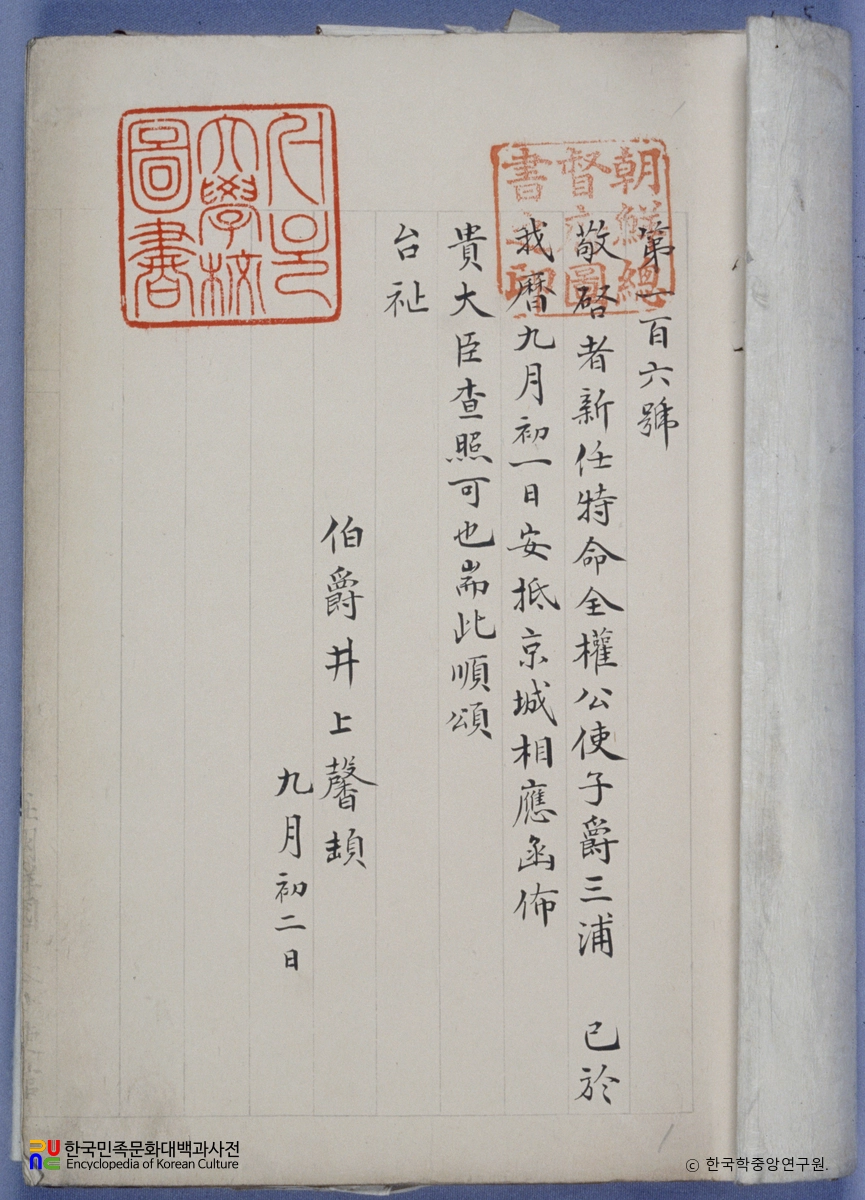 第一百六號
敬啓者新任特命全權公使子爵三浦 已於
我曆九月初一日安抵京城相應函佈
貴大臣查照可也耑此順頌
台祉
伯爵井上馨頓
九月初二日
朝鮮總
督府圖
書之印
서울
大學校
圖書
한국민족문화대백과사전
Encyclopedia of Korean Culture
© 한국학중앙연구원.